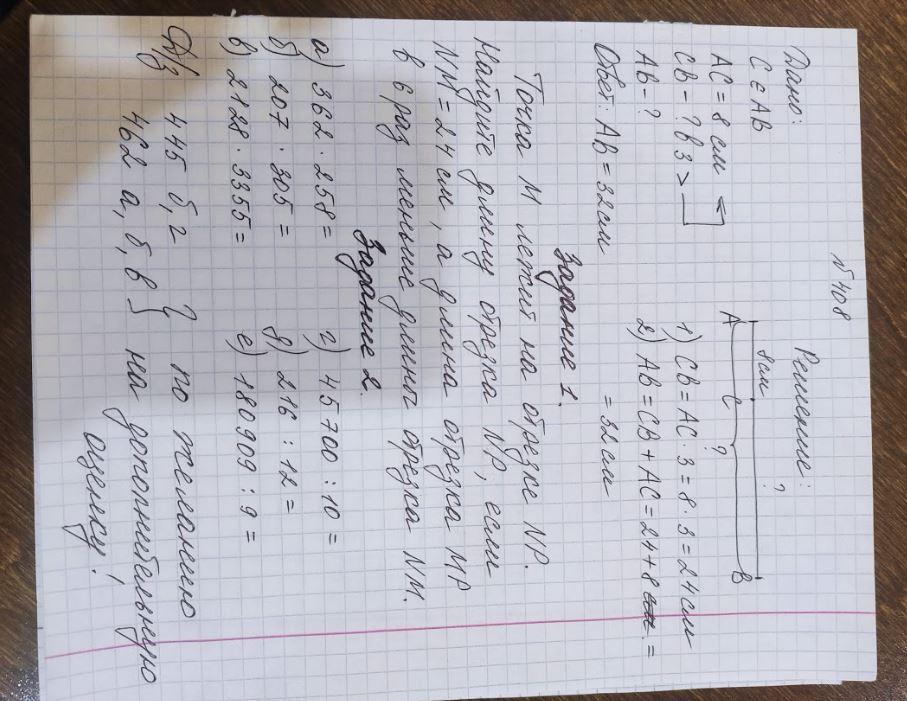 №408
Дано:
C∈AB
AC = 8 см
CB - ? в 3 >
AB - ?
Решение:
?
8 см
A C ? B
1) CB = AC · 3 = 8 · 3 = 24 см
2) AB = CB + AC = 24 + 8 =
= 32 см
Ответ: AB = 32 см
Задание 1.
Точка M лежит на отрезке NP.
Найдите длину отрезка NP, если
NM = 24 см, а длина отрезка MP
в 6 раз меньше длины отрезка NM.
Задание 2.
а) 362 · 258 =
б) 207 · 305 =
в) 2128 · 3355 =
г) 45700 : 10 =
д) 216 : 12 =
е) 180909 : 9 =
Д/з 445 б, г } по желанию
462 а, б, в } на дополнительную
оценку!